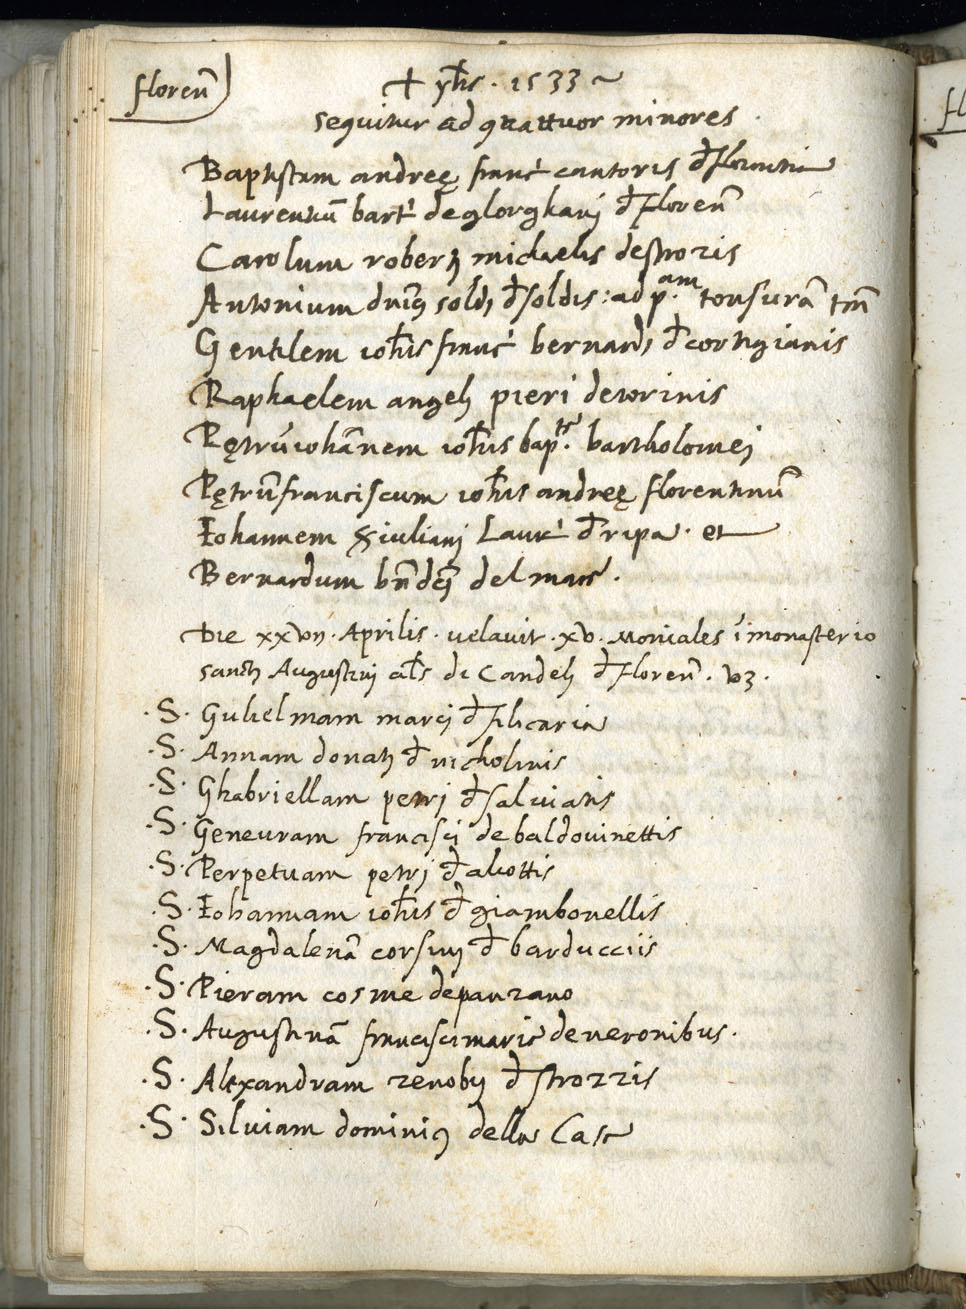 floren̄
+ yħs · 1533 ~
sequitur ad quattuor minores ·
Baptistam andreę franc̄ cantoris đ florentia
Laurentiū bart̄ deglorghani đ floren̄
Carolum roberti michaelis destrozis
Antonium dnīci soldi đ soldis : ad p.am tonsurā tm̄
Gentilem ioħis franc̄ bernardi đ cortigianis
Raphaelem angeli pieri detorinis
Pętrū iohānem ioħis bap.te bartholomei
Pętrūfranciscum ioħis andreę florentinū
Iohannem Giuliani Laur̄ đ ripa · et
Bernardum bn̄dci del mace .
Die xxvij · Aprilis · velavit · xv · Moniales ī monasterio
sancti Augustini al̄s di Candeli đ floren̄ · vz ·
· S · Gulielmam marci đ filicaria
· S · Annam donati đ nicholinis
· S · Ghabriellam petri đ salviatis
· S · Genevram francisci de baldovinettis
· S · Perpetuam petri đ aliottis
· S · Iohannam ioħis đ giambonellis
· S · Magdalenā corsini đ barducciis
· S · Pieram cosme depanzano
· S · Augustinā francisci marie deneronibus ·
· S · Alexandram zenobij đ strozzis
· S · Silviam dominici della Casa